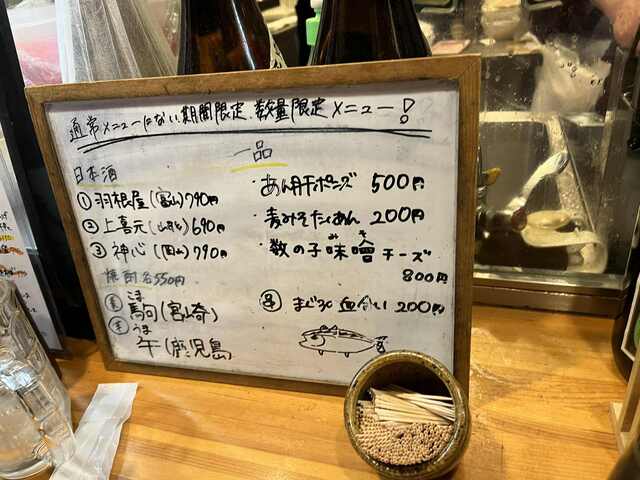 通常メニューにない期間限定、数量限定メニュー!
日本酒
① 羽根屋(富山)790円
② 上喜元(山形)690円
③ 神心(岡山)790円
焼酎各550円
こま
駒(宮崎)
うま
(鹿児島
一品
・あん肝ポン酢 500円
・麦みそたくあん 200円
みそ
・数の子味噌チーズ
800円
まぐろ血合い 200円